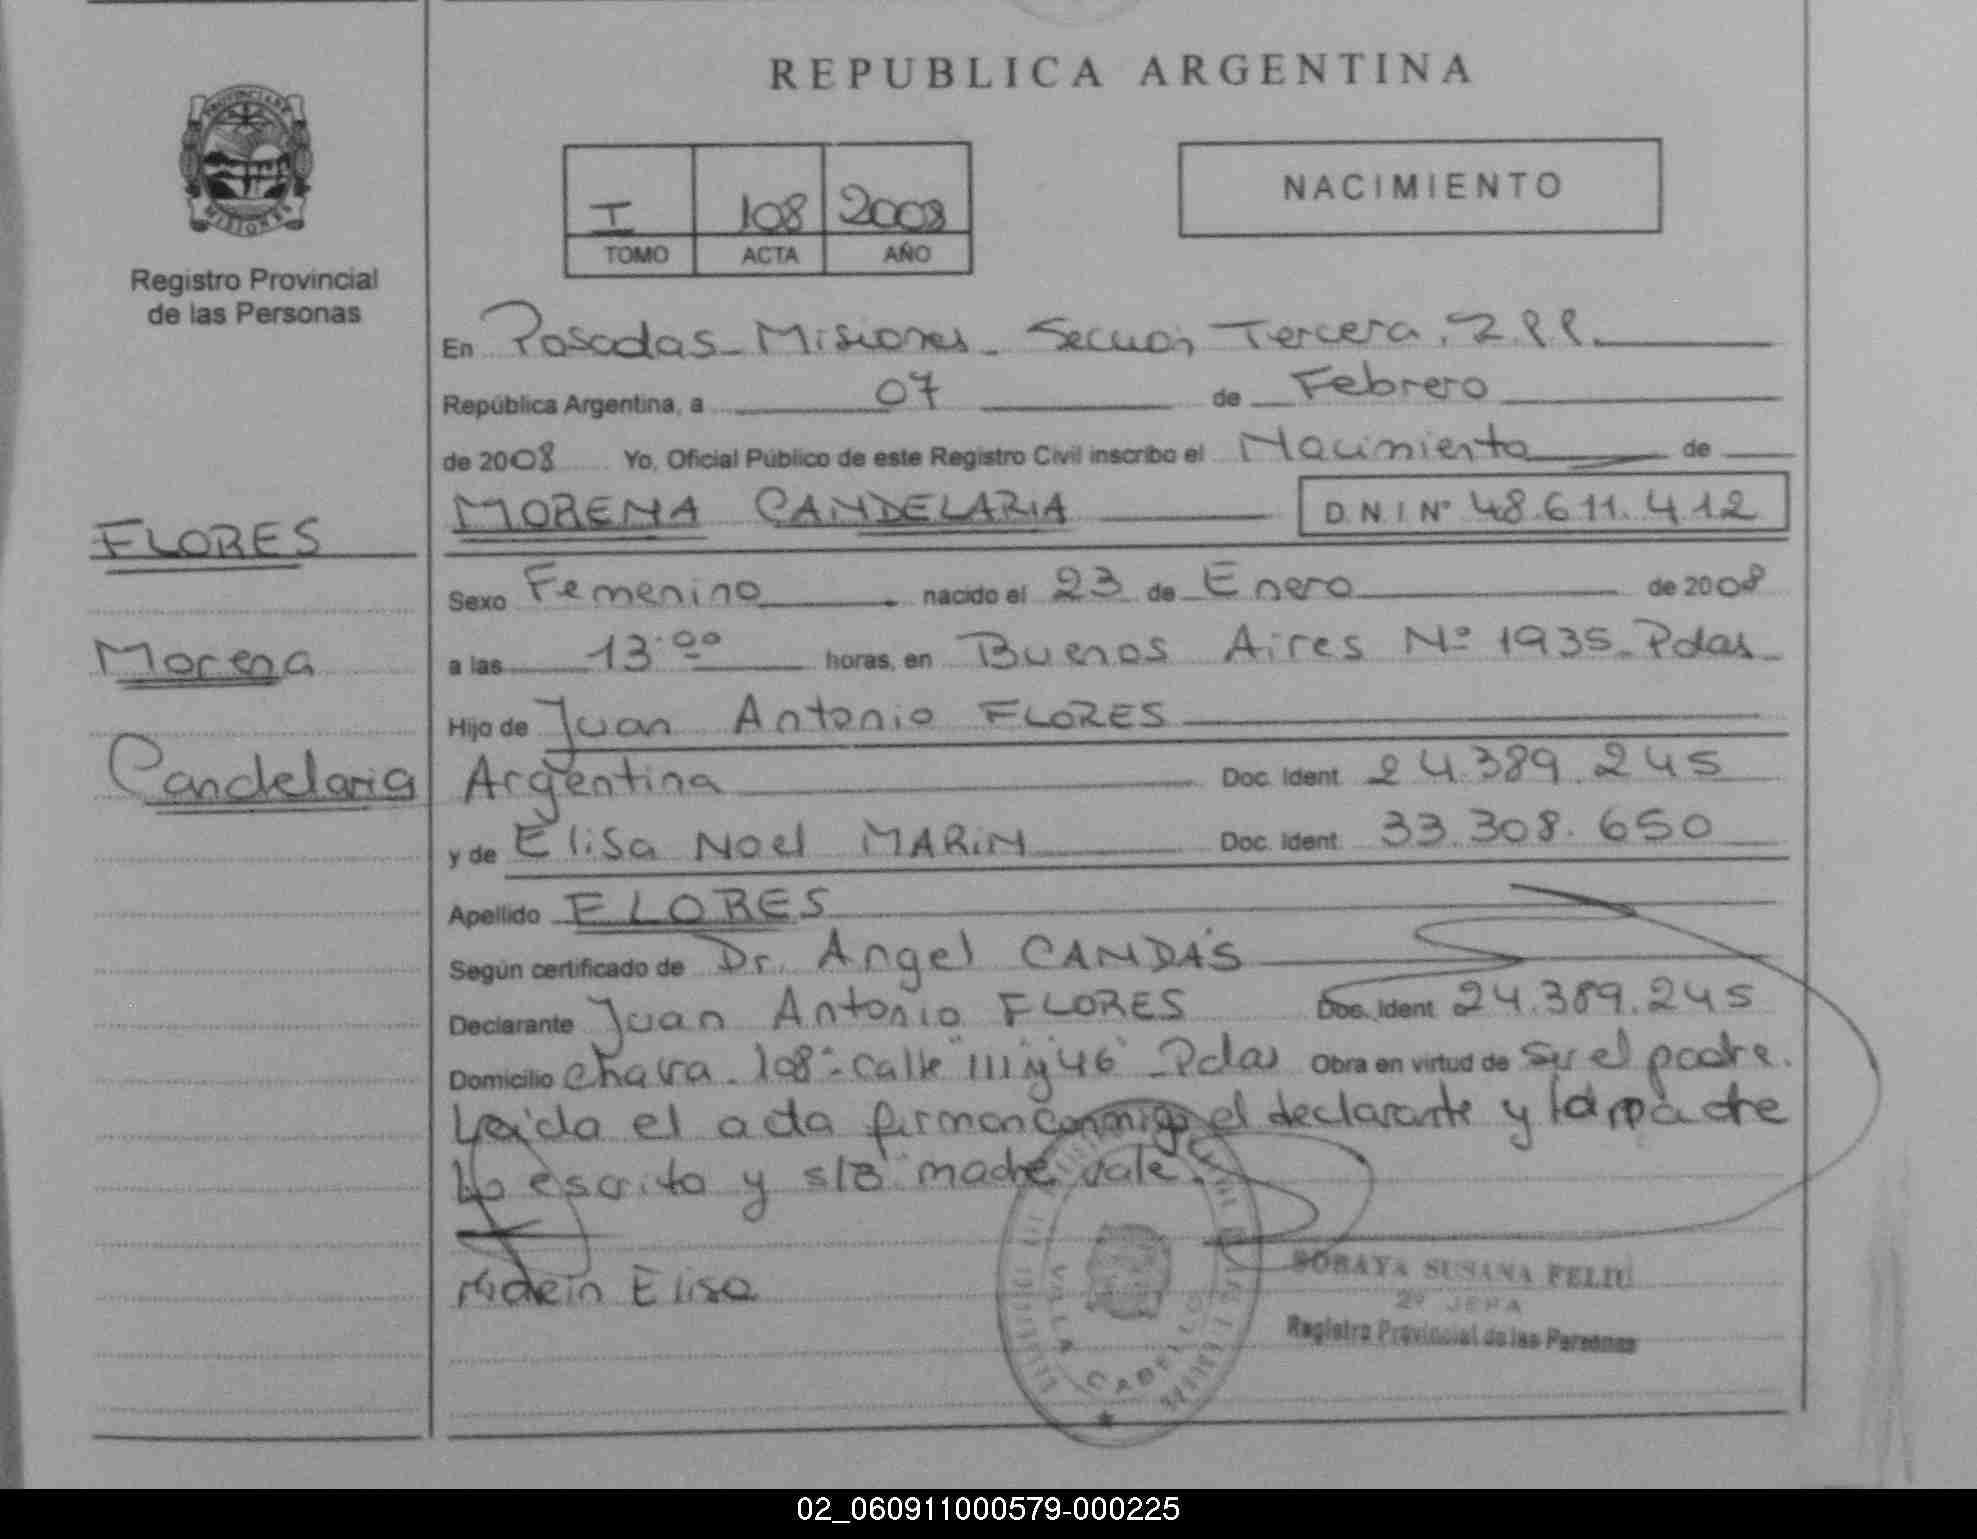 REPUBLICA ARGENTINA
PROVINCIA DE
MISIONES
Registro Provincial
de las Personas
I 108 2008
TOMO ACTA AÑO
NACIMIENTO
En Posadas - Misiones - Tercera
República Argentina, a 07 de Febrero
de 2008 Yo, Oficial Público de este Registro Civil inscribo el Nacimiento de
MORENA CANDELARIA D.N.I Nº 48.611.412
FLORES
Morena
Candelaria
Sexo Femenino nacido el 23 de Enero de 2008
a las 13:00 horas, en Buenos Aires Nº 1935 - Pdas
Hijo de Juan Antonio FLORES
Argentina Doc. Ident. 24.389.245
y de Elisa Noel MARIN Doc. Ident. 33.308.650
Apellido FLORES
Según certificado de Dr. Angel CANDAS
Declarante Juan Antonio FLORES Doc. Ident. 24.389.245
Domicilio chacra 108 - calle "111 y 46" - Pdas Obra en virtud de ser el padre.
Leida el acta firman conmigo el declarante y la madre
Lo escrito y s/B "madre" vale.
Marin Elisa
VILLA CABELLO
SORAYA SUSANA FELIU
2º JEFA
Registro Provincial de las Personas
02_060911000579-000225